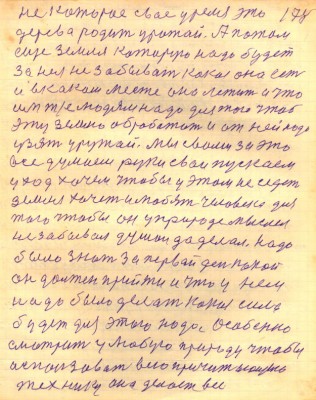 не которое свое время это 178
дерева родит урожай. А потом
еще земля которую надо будет
За ней не забыват кокоя она ест
и в каком месте оно лежит и что
им же людям надо для того чтоб
эту землю обработат и от ней надо
взят урожай. Мы свои за это
все думаем руки свои пускаем
уход хочем чтобы у этом не сидет
земля хочет и любят человека для
того чтобы он у природе мыслил
не забывал душой да делал. надо
было знат за первай ден какой
он должен прийти и что у нем
надо было делат какая сила
будет для этого надо. Особенно
смотрит у любую природу чтобы
использоват всю причитающию
технику она делает все